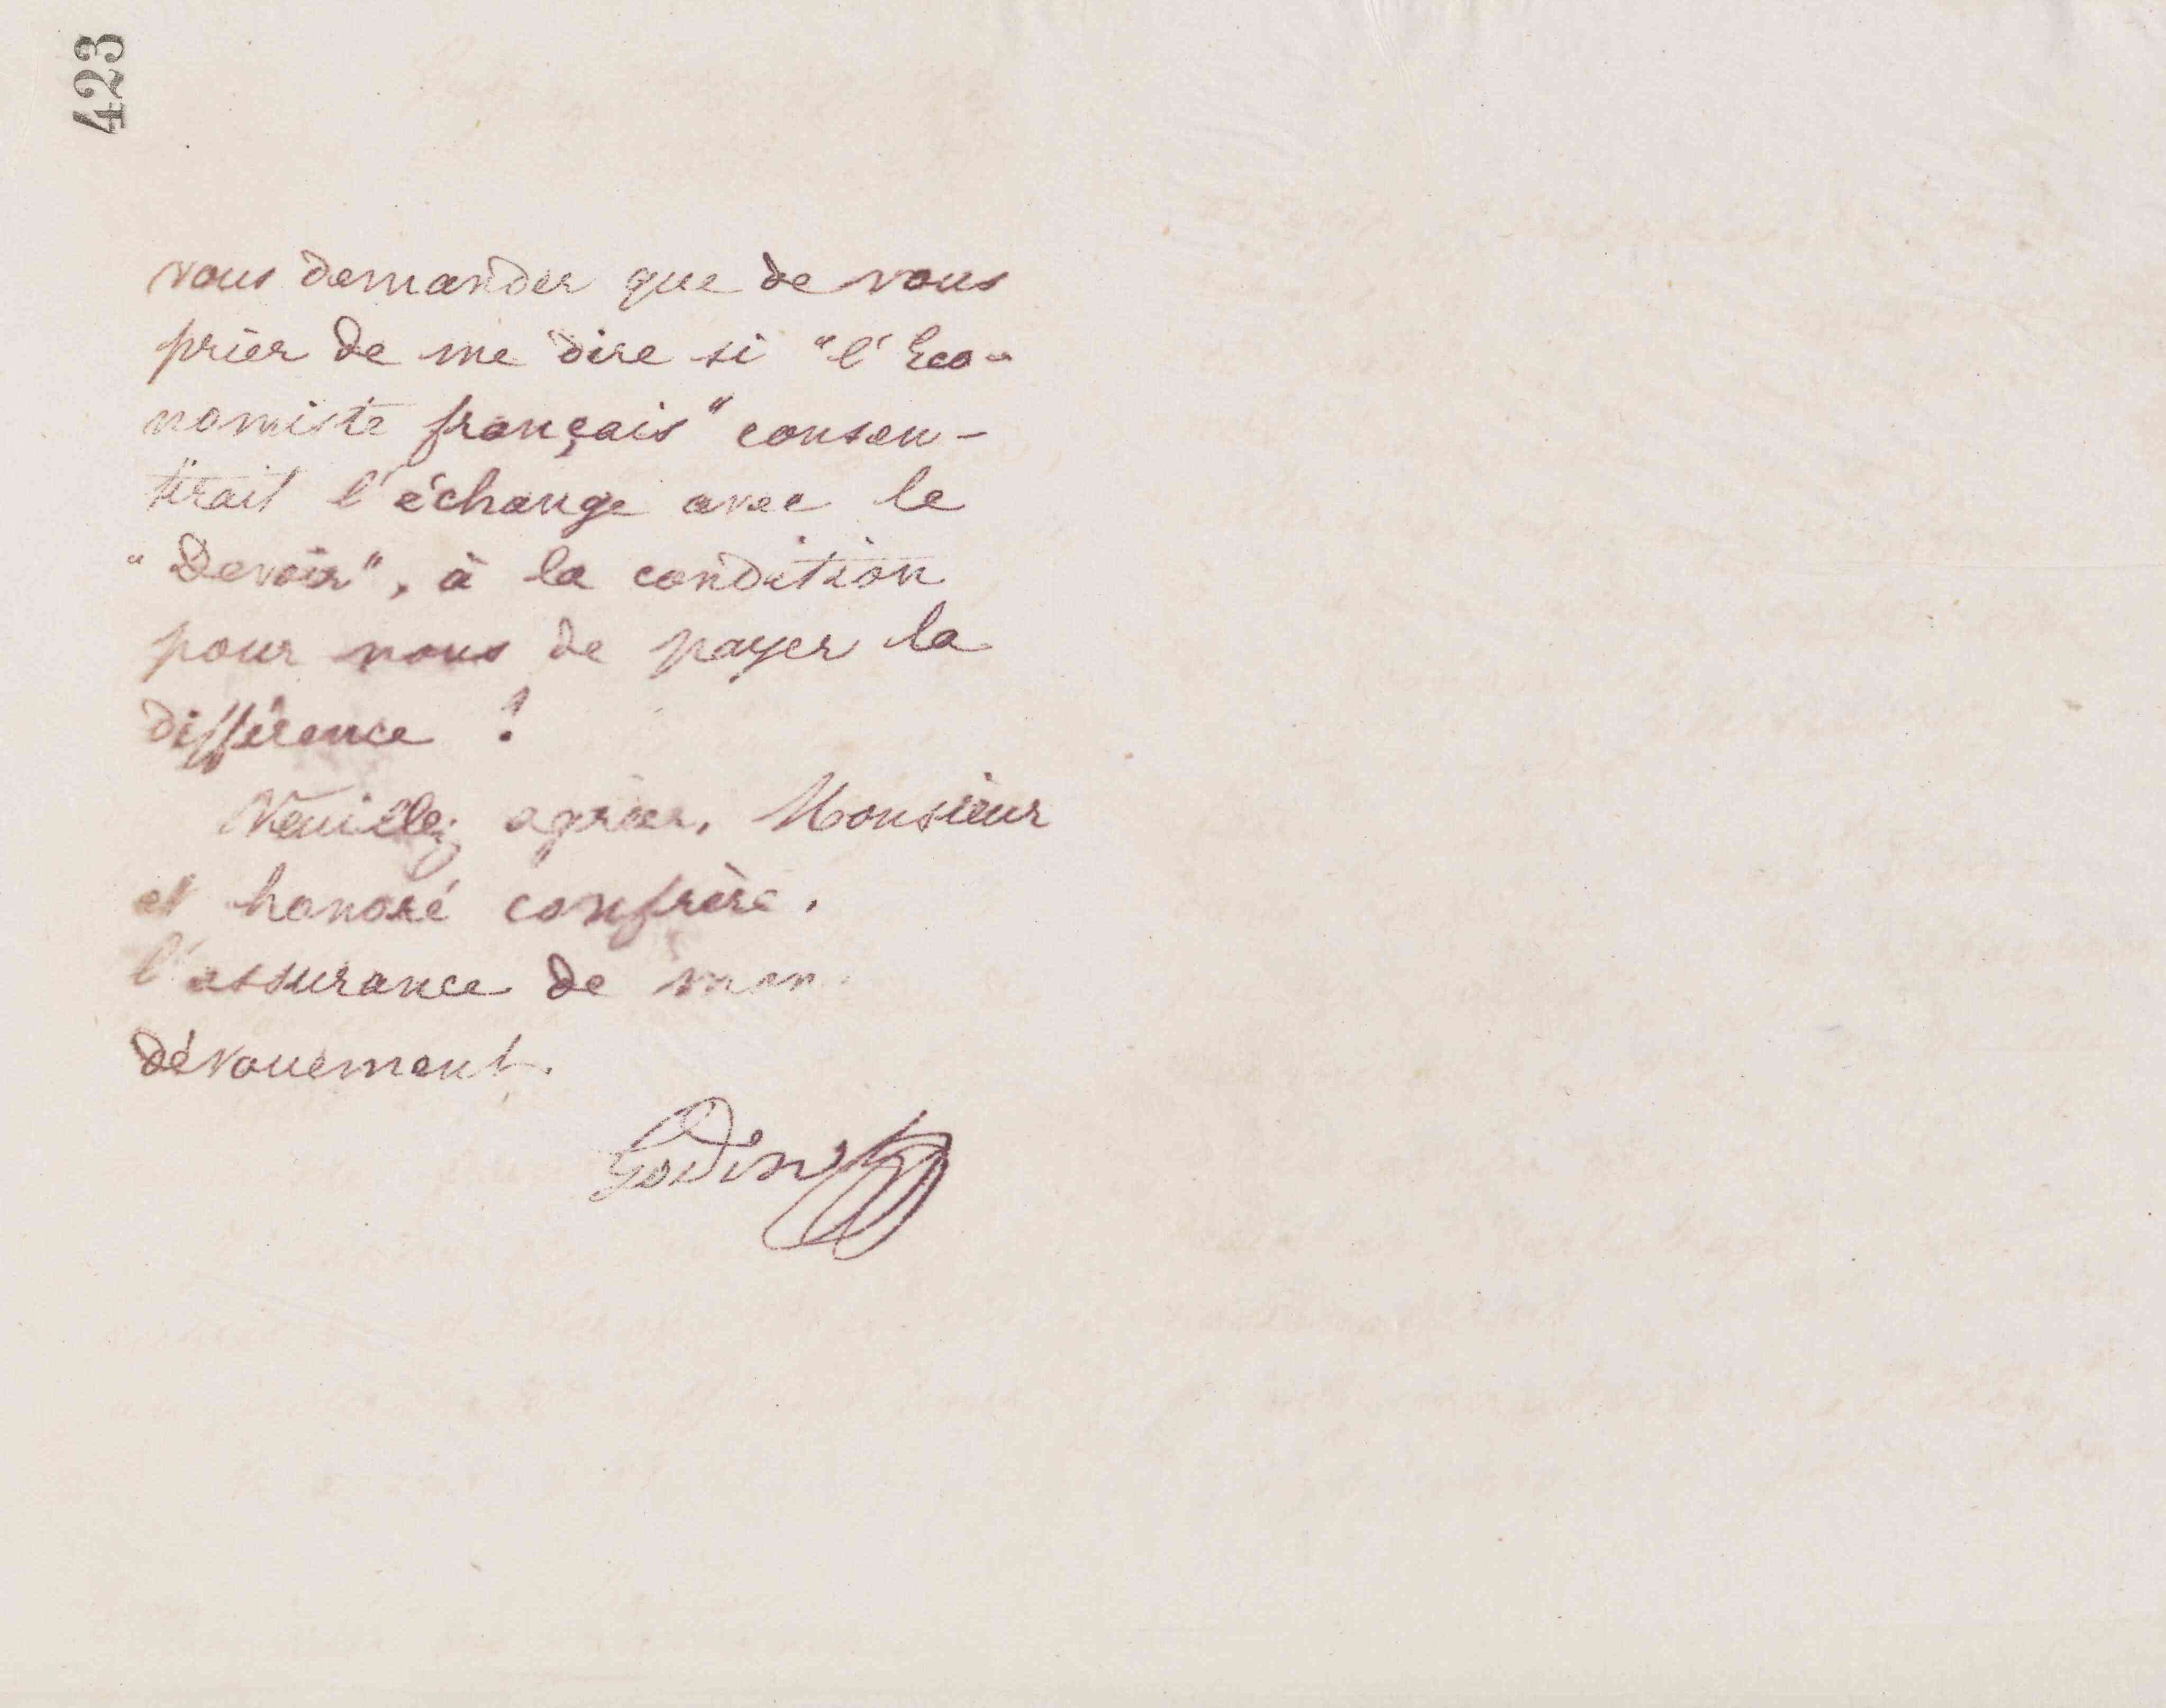 423
vous demander que de vous
prier de me dire si "l'Eco-
nomiste français" consen-
tirait l'échange avec le
"Devoir", à la condition
pour nous de payer la
différence ?
Veuillez agréer, Monsieur
et honoré confrère,
l'assurance de mon
dévouement.
Godin